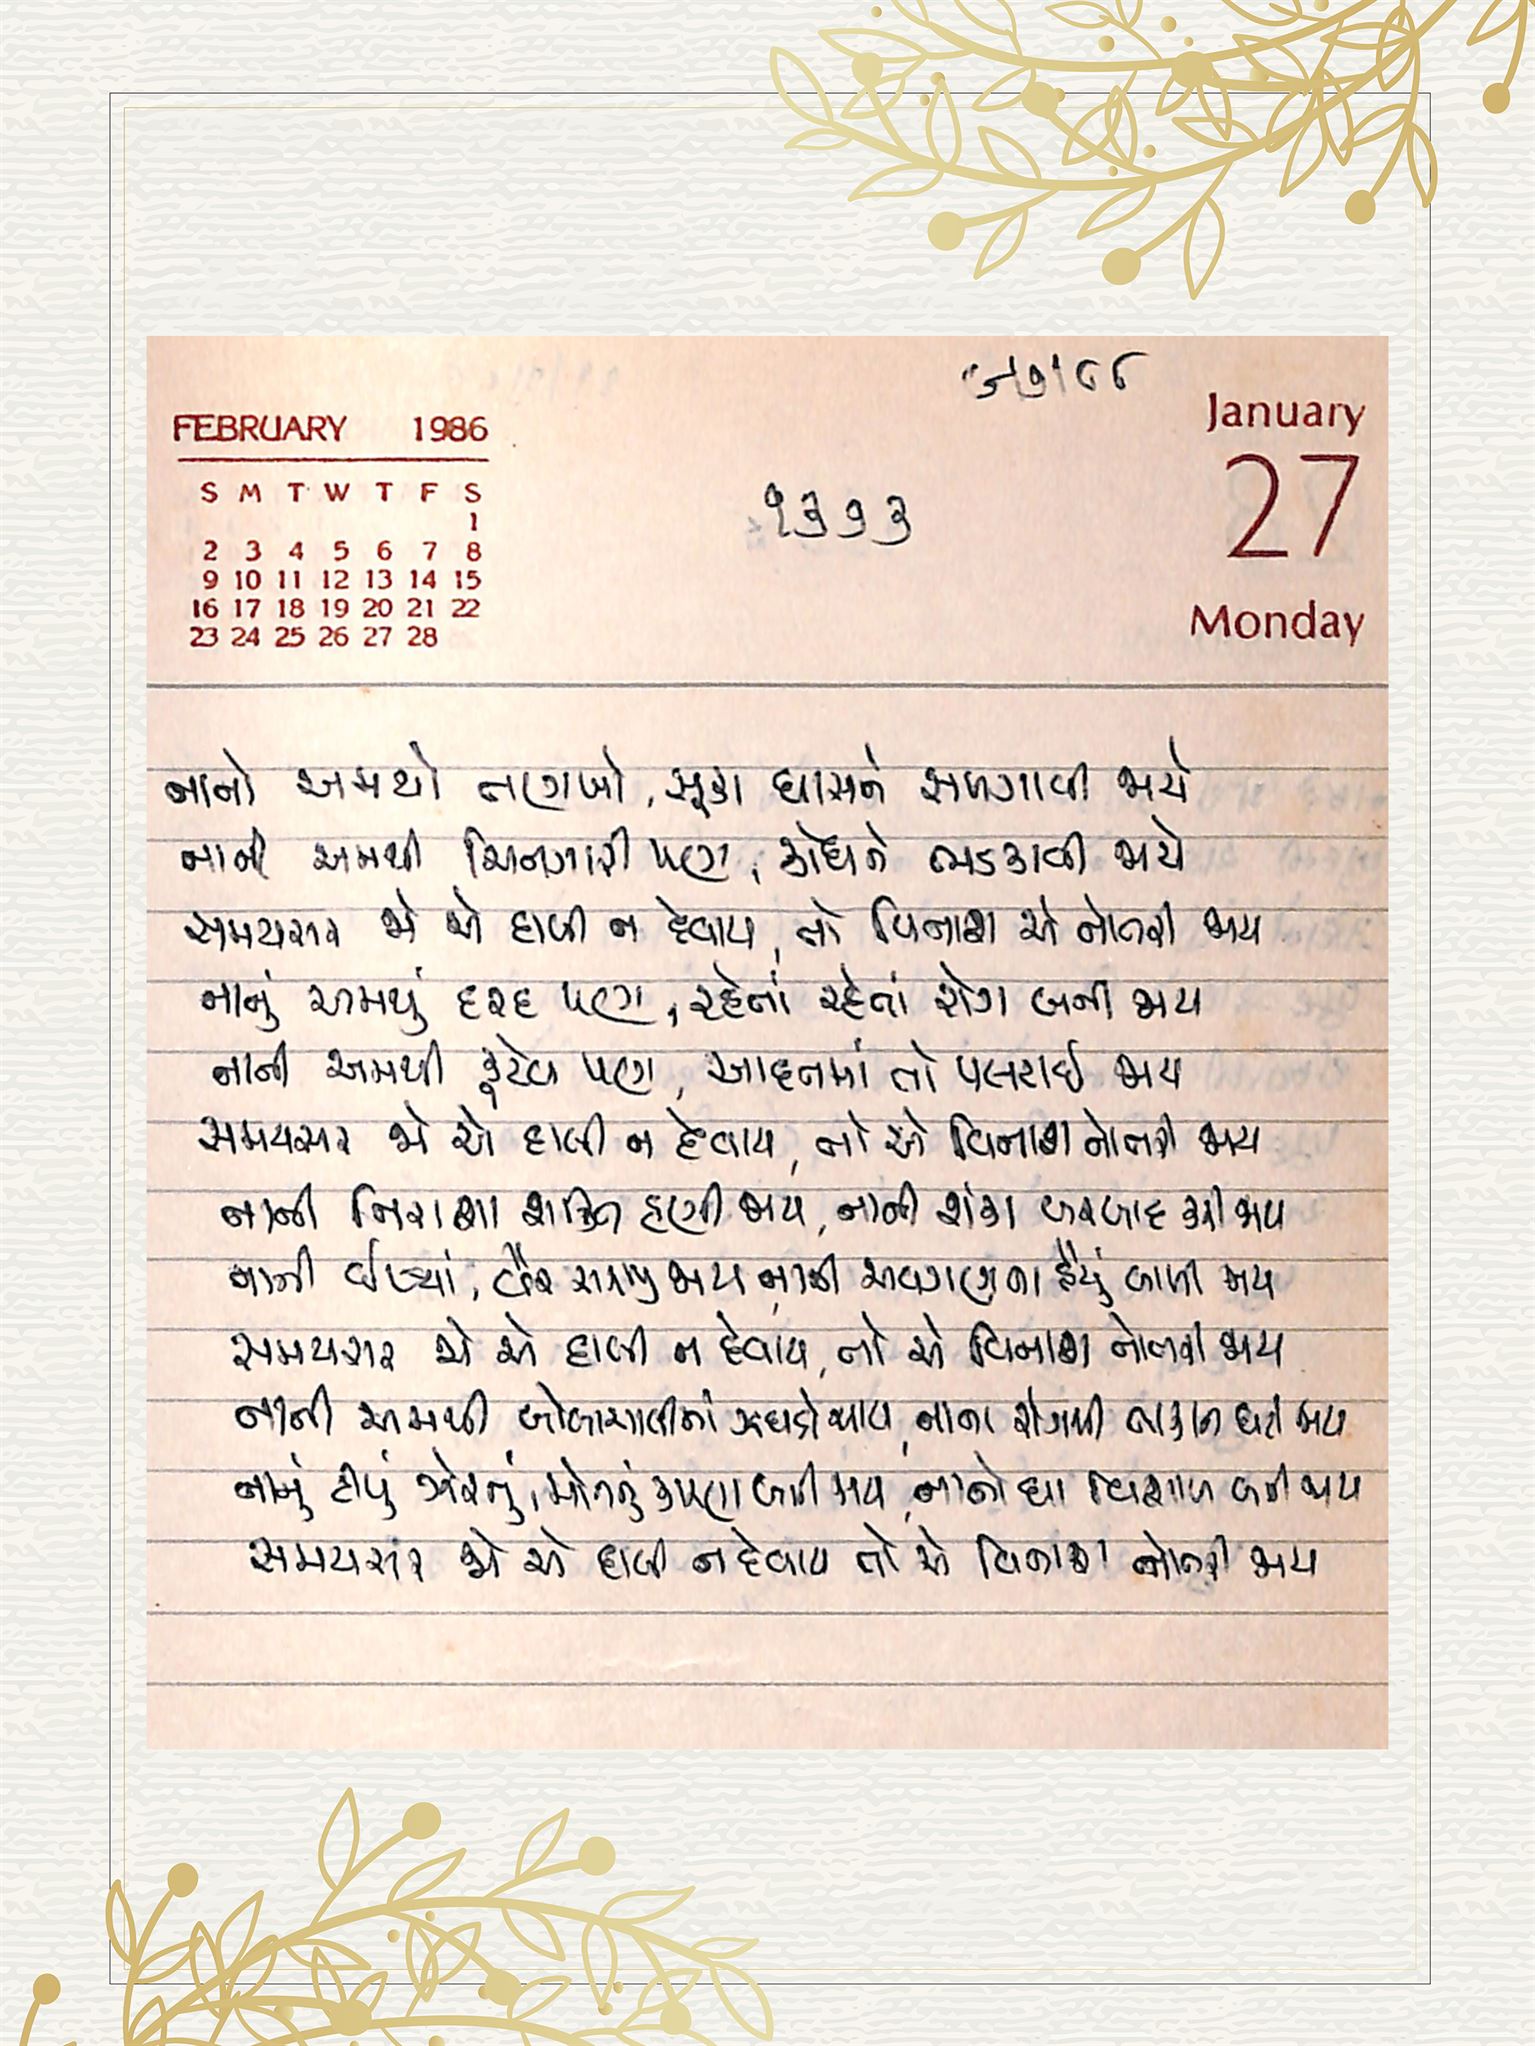 January
27
Monday
FEBRUARY 1986
S M T W T F S
1
2 3 4 5 6 7 8
9 10 11 12 13 14 15
16 17 18 19 20 21 22
23 24 25 26 27 28
૧૩૧૩
નાનો અમથો તણખો, સૂકા ઘાસને સળગાવી જાયે
નાની અમથી ચિનગારી પણ, ક્રોધને ભડકાવી જાયે
સમયસર જો એ દાબી ન દેવાય, તો વિનાશ એ નોતરી જાય
નાનું અમથું દરદ પણ, રહેતાં રહેતાં રોગ બની જાય
નાની અમથી કૂટેવ પણ, આદતમાં તો પલટાઈ જાય
સમયસર જો એ દાબી ન દેવાય, તો એ વિનાશ નોતરી જાય
નાની નિરાશા શક્તિ હણી જાય, નાની શંકા બરબાદ કરી જાય
નાની ઈર્ષ્યા, વેર સરજી જાય, નાની અવગણના હૈયું બાળી જાય
સમયસર જો એ દાબી ન દેવાય, તો એ વિનાશ નોતરી જાય
નાની અમથી બોલાચાલીમાં ઝઘડો થાય, નાના રોગથી તાકાત ઘટી જાય
નાનું ટીપું ઝેરનું, મોતનું કારણ બની જાય, નાનો ઘા વિશાળ બની જાય
સમયસર જો એ દાબી ન દેવાય તો એ વિનાશ નોતરી જાય